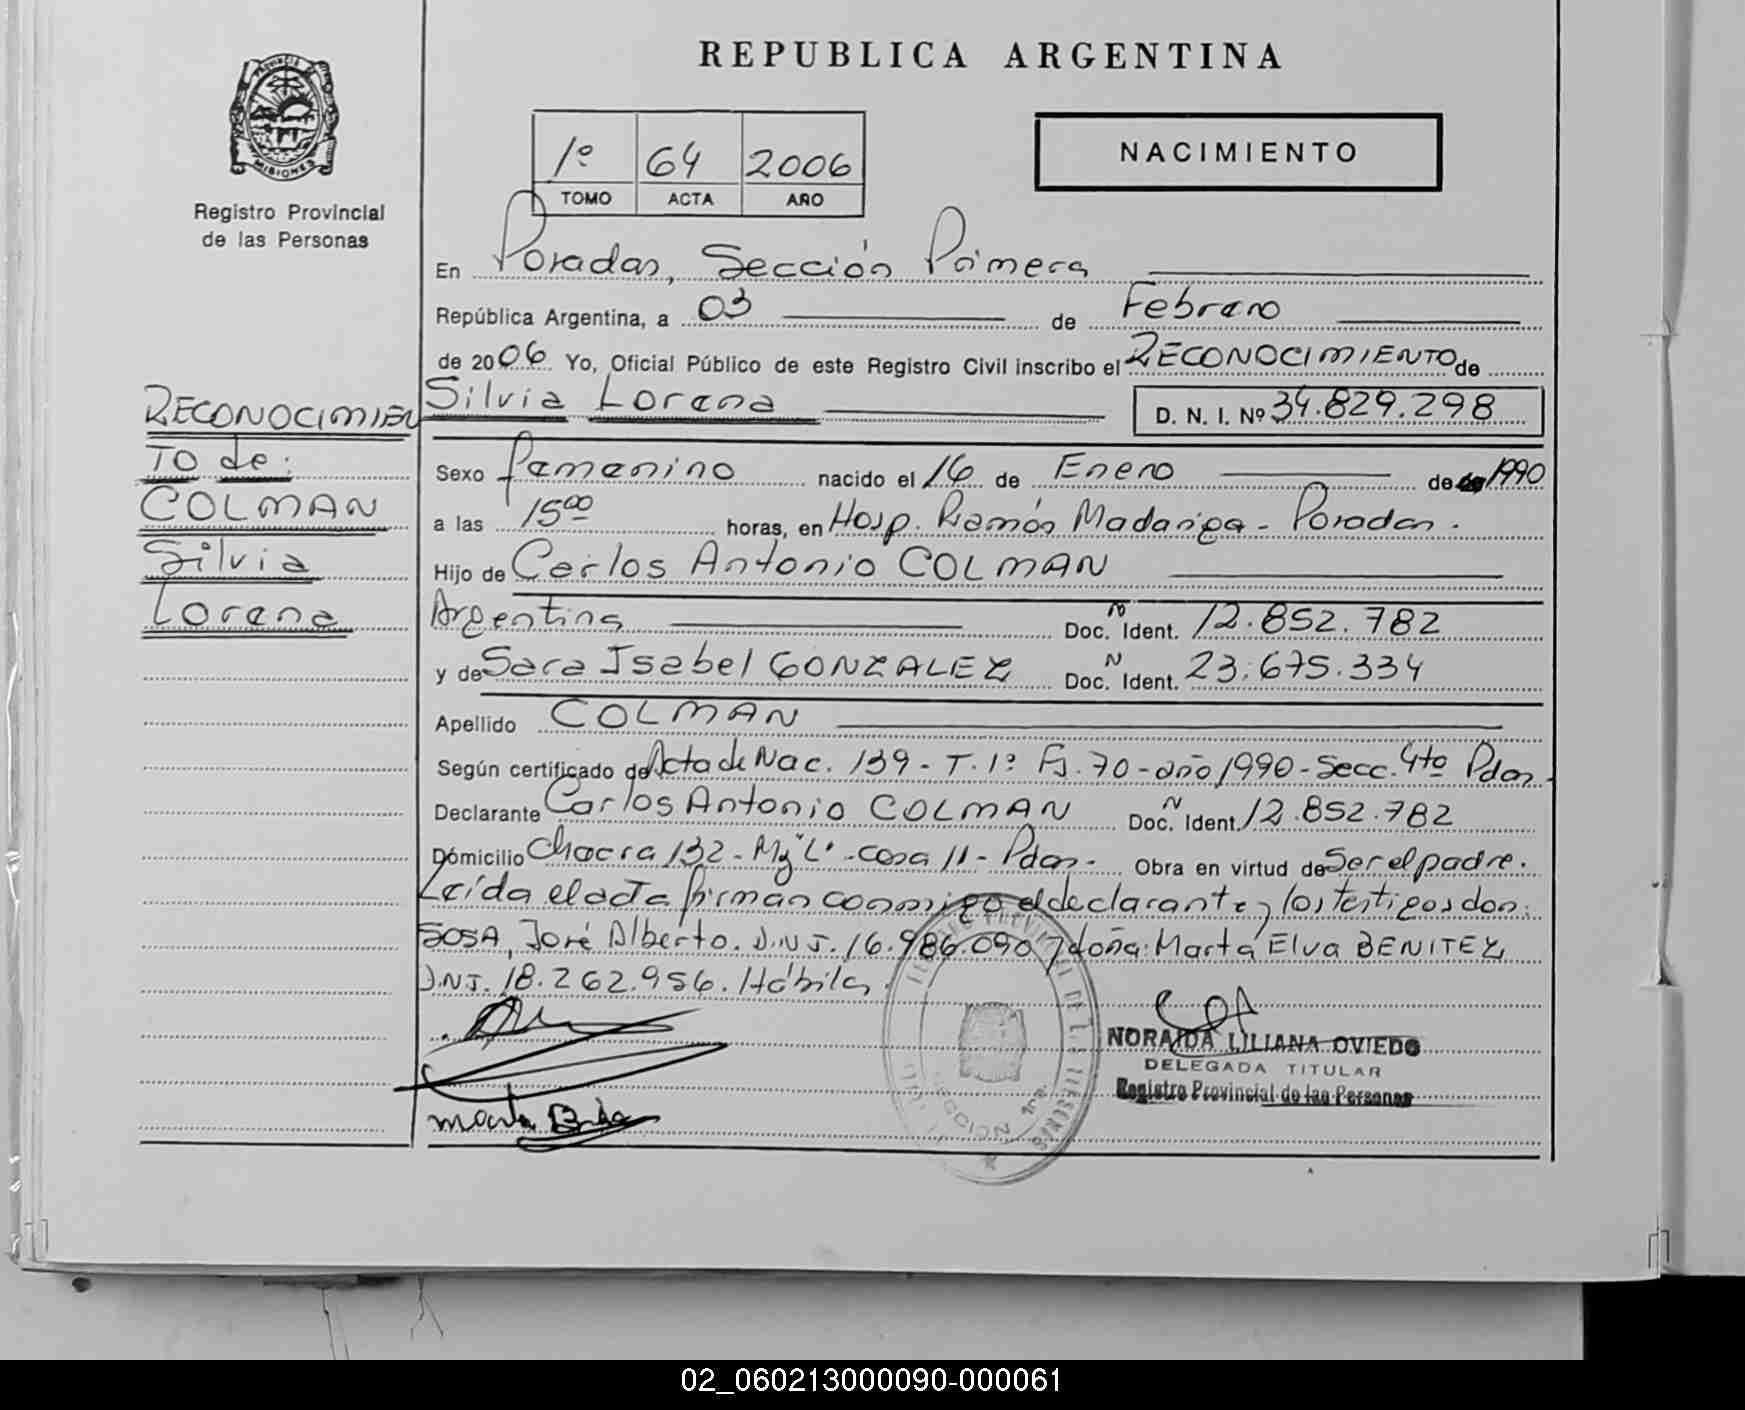 REPUBLICA ARGENTINA
PROVINCIA DE
MISIONES
Registro Provincial
de las Personas
1º 64 2006
TOMO ACTA AÑO
NACIMIENTO
En Posadas, Sección Primera
República Argentina, a 03 de Febrero
de 2006 Yo, Oficial Público de este Registro Civil inscribo el RECONOCIMIENTO de
Silvia Lorena D. N. I. Nº 34.829.298
RECONOCIMIEN
TO de:
COLMAN
Silvia
Lorena
Sexo femenino nacido el 16 de Enero de 1990
a las 15 00 horas, en Hosp. Ramón Madariaga - Posadas.
Hijo de Carlos Antonio COLMAN
Argentina Doc. Ident. 12.852.782
y de Sara Isabel GONZALEZ Doc. Ident. 23.675.334
Apellido COLMAN
Según certificado de Acta de Nac. 139 - T. 1º Fj. 70 - año 1990 - Secc. 4to Pdas.
Declarante Carlos Antonio COLMAN Doc. Ident. 12.852.782
Domicilio Chacra 132 - casa 11 - Pdas. Obra en virtud de Ser el padre.
Leída el acta firman conmigo el declarante y los testigos don:
SOSA, José Alberto. D.N.I. 16.986.090 y doña: Marta Elva BENITEZ
D.N.I. 18.262.956. Hábiles.
NORAIDA LILIANA OVIEDO
DELEGADA TITULAR
Registro Provincial de las Personas
SECCION 1ra.
02_060213000090-000061